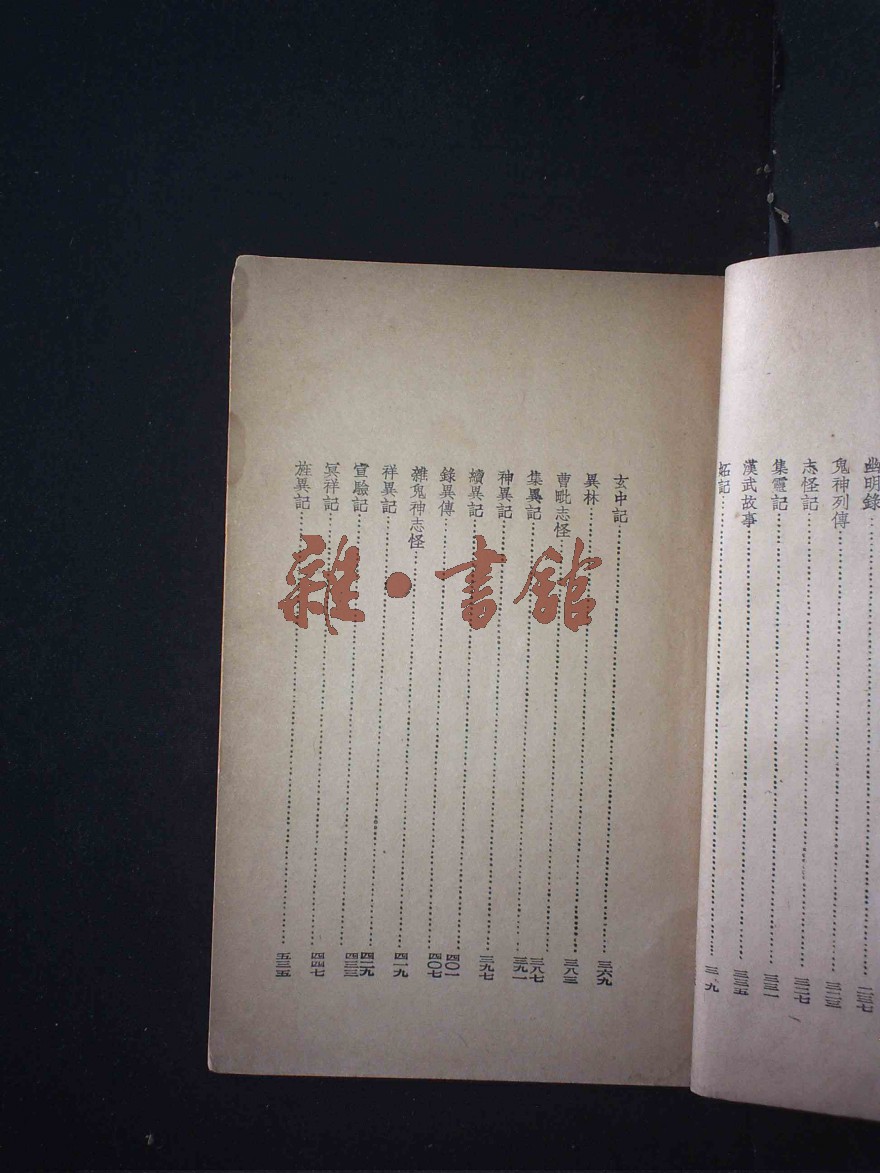 幽明錄……二三七
鬼神列傳……三二三
志怪記……三二七
集靈記……三三一
漢武故事……三三五
妬記……
玄中記……三六九
異林……三八三
曹毗志怪……三八七
集異記……三九一
神異記……三九七
續異記……四〇一
錄異傳……四〇七
雜鬼神志怪……四一九
祥異記……四二九
宣驗記……四三三
冥祥記……四四七
旌異記……五三五
雜·書館